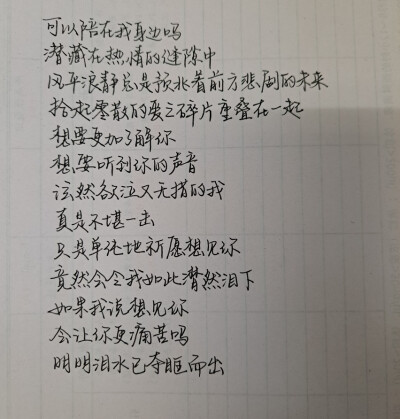 可以陪在我身边吗
潜藏在热情的缝隙中
风平浪静总是预兆着前方悲剧的未来
拾起零散的爱之碎片重叠在一起
想要更加了解你
想要听到你的声音
泫然欲泣又无措的我
真是不堪一击
只是单纯地祈愿想见你
竟然会令我如此潸然泪下
如果我说想见你
会让你更痛苦吗
明明泪水已夺眶而出